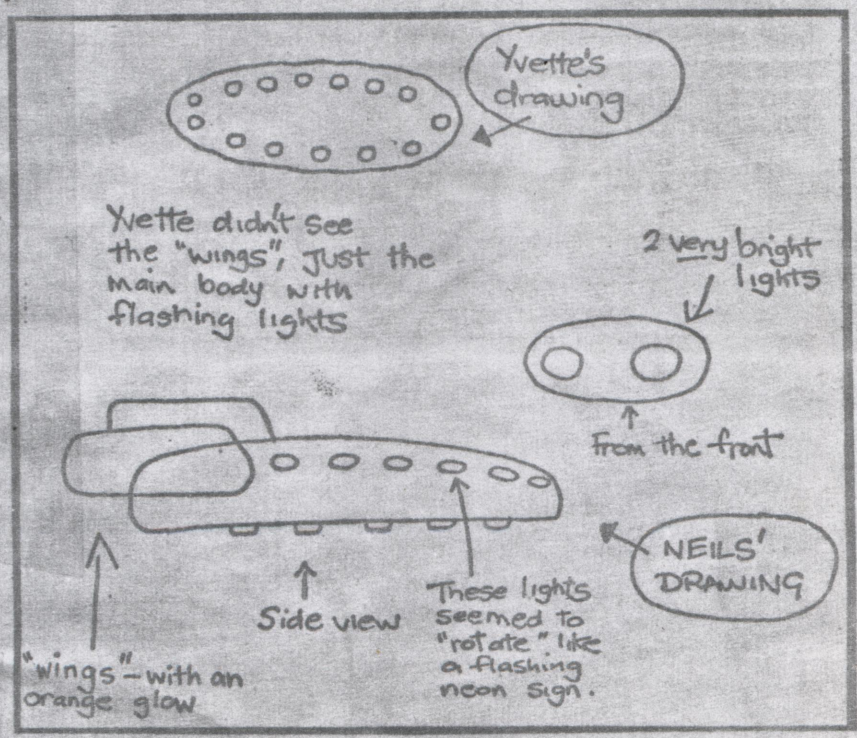 Yvette's
drawing
Yvette didn't see
the "wings", just the
main body with
flashing lights
2 very bright
lights
From the front
NEILS'
DRAWING
Side view
These lights
seemed to
"rotate" like
a flashing
neon sign.
"wings" - with an
orange glow